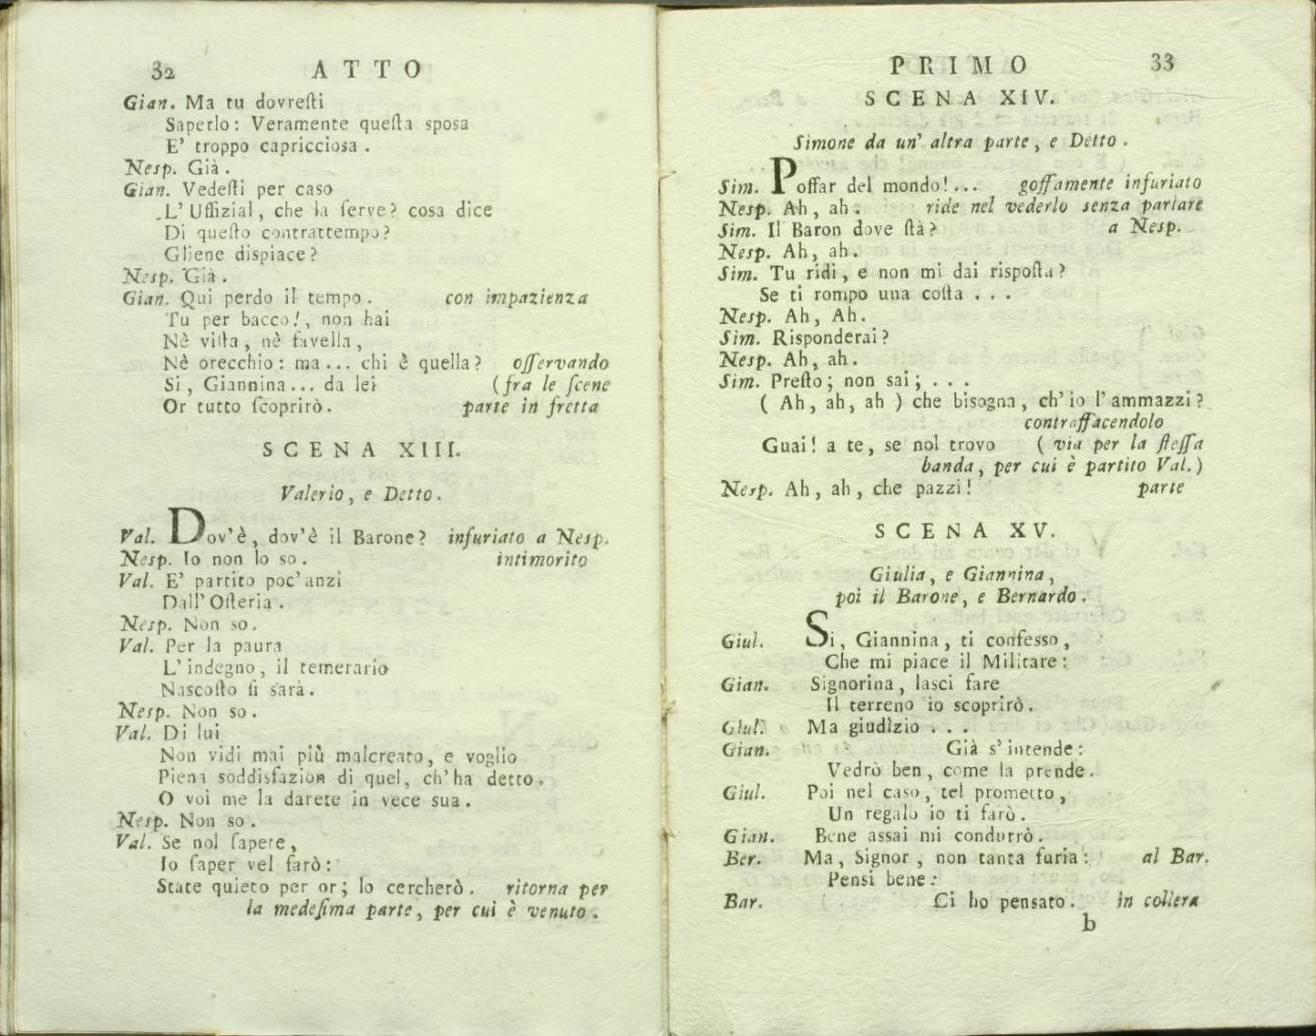 32 ATTO
Gian. Ma tu dovreſti
Saperlo: Veramente queſta sposa
E' troppo capricciosa.
Nesp. Già.
Gian. Vedeſti per caso
L'Uffizial, che la ſerve? cosa dice
Di queſto contrattempo?
Gliene dispiace?
Nesp. Già.
Gian. Qui perdo il tempo. con impazienza
Tu per bacco!, non hai
Nè viſta, nè favella,
Nè orecchio: ma... chi è quella? oſſervando
Si, Giannina... da lei (fra le ſcene
Or tutto ſcoprirò. parte in fretta
SCENA XIII.
Valerio, e Detto.
Val. Dov'è, dov'è il Barone? infuriato a Nesp.
Nesp. Io non lo so. intimorito
Val. E' partito poc'anzi
Dall'Oſteria.
Nesp. Non so.
Val. Per la paura
L'indegno, il temerario
Nascoſto ſi sarà.
Nesp. Non so.
Val. Di lui
Non vidi mai più malcreato, e voglio
Piena soddisfazion di quel, ch'ha detto.
O voi me la darete in vece sua.
Nesp. Non so.
Val. Se nol ſapete,
Io ſaper vel farò:
State quieto per or; lo cercherò. ritorna per
la medeſima parte, per cui è venuto.
PRIMO 33
SCENA XIV.
Simone da un' altra parte, e Detto.
Sim. Poffar del mondo!... goffamente infuriato
Nesp. Ah, ah. ride nel vederlo senza parlare
Sim. Il Baron dove ſtà? a Nesp.
Nesp. Ah, ah.
Sim. Tu ridi, e non mi dai rispoſta?
Se ti rompo una coſta...
Nesp. Ah, Ah.
Sim. Risponderai?
Nesp. Ah, ah.
Sim. Preſto; non sai;...
(Ah, ah, ah) che bisogna, ch'io l'ammazzi?
contraffacendolo
Guai! a te, se nol trovo (via per la ſteſſa
banda, per cui è partito Val.)
Nesp. Ah, ah, che pazzi! parte
SCENA XV.
Giulia, e Giannina,
poi il Barone, e Bernardo.
Giul. Si, Giannina, ti confesso,
Che mi piace il Militare:
Gian. Signorina, lasci fare
Il terreno io scoprirò.
Giul. Ma giudizio...
Gian. Già s'intende:
Vedrò ben, come la prende.
Giul. Poi nel caso, tel prometto,
Un regalo io ti farò.
Gian. Bene assai mi condurrò.
Ber. Ma, Signor, non tanta furia: al Bar.
Pensi bene:
Bar. Ci ho pensato. in collera
b